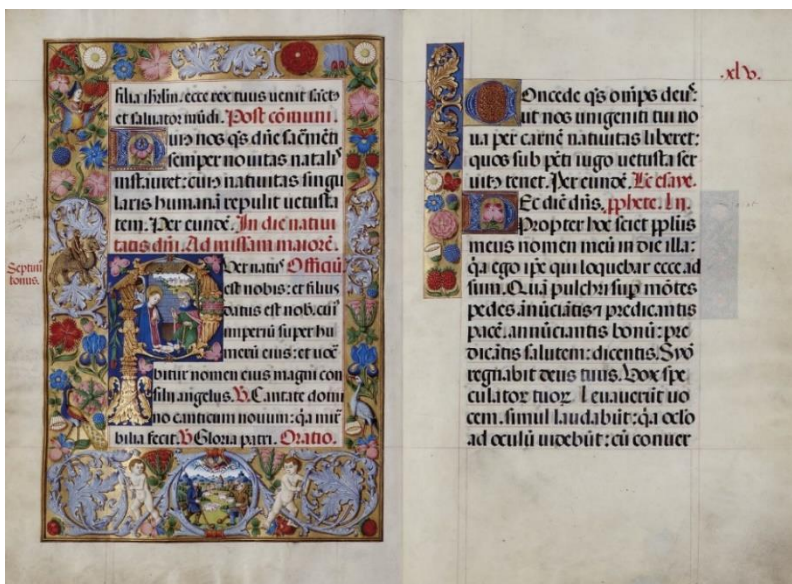 filia ihrlm. ecce rex tuus uenit sāct9
et saluator mūdi. Post cōmuni.
Huiꝰ nos qs dn̄e sacm̄eti
semper nouitas natalis
instauret: cuiꝰ natiuitas singu
laris humanā repulit uetusta
tem. Per eundē. In die natiui
tatis dn̄i. Ad missam maiorē.
Septimꝰ
tonus.
Puer natus Officiū.
est nobis: et filius
datus est nob. cuiꝰ
imperiū super hu
merū eius: et uocā
bitur nomen eius magni con
silij angelus. V. Cantate domi
no canticum nouum: q̄a mir̄a
bilia fecit. V Gloria patri. Oratio.
.xlv.
Concede qs om̄ps deus:
ut nos unigeniti tui no
ua per carnē natiuitas liberet:
quos sub pēti iugo uetusta ser
uitꝰ tenet. Per eundē. Lc̄ esaye.
Hec dic̄ dn̄s, pphete. In.
Propter hoc sciet pplius
meus nomen meū in die illa:
q̄a ego ip̄e qui loquebar ecce ad
sum. Quā pulchri sup mōtes
pedes ānūciātis ⁊ predicantis
pacē: annūciantis bonū: pre
dicātis salutem: dicentis. Syō
regnabit deus tuus. Vox spe
culator tuoꝝ. Leuauerūt uo
cem. simul laudabūt: q̄a oclo
ad oculū uidebūt: cū conuer